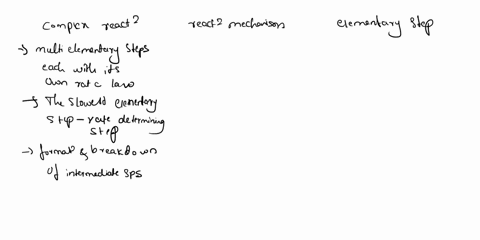 complex react? react? mechanism elementary step
→ multi elementary steps
each with its
own rate law
→ The slowest elementary
step - rate determining
step
→ format & breakdown
of intermediate sps